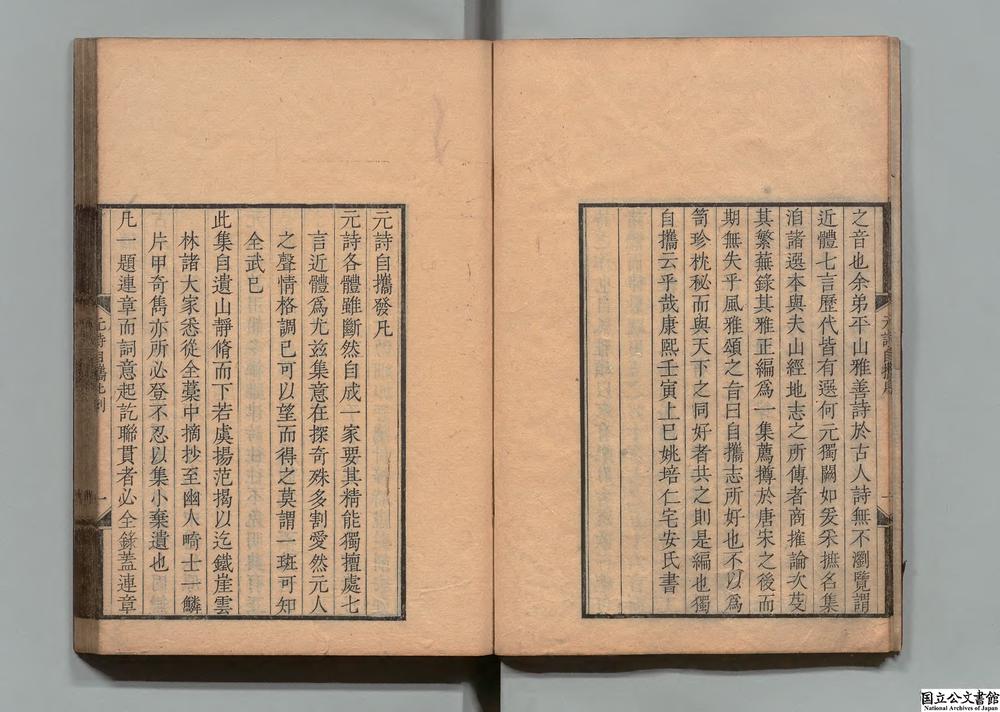 之音也余弟平山雅善詩於古人詩無不瀏覽謂
近體七言歷代皆有選何元獨闕如爰采摭名集
洎諸選本與夫山經地志之所傳者商搉論次芟
其繁蕪錄其雅正編爲一集薦撙於唐宋之後而
期無失乎風雅頌之音曰自攜志所好也不以爲
笥珍枕秘而與天下之同好者共之則是編也獨
自攜云乎哉康熙壬寅上巳姚培仁宅安氏書
元詩自攜發凡
元詩各體雖斷然自成一家要其精能獨擅處七
言近體爲尤兹集意在探奇殊多割愛然元人
之聲情格調已可以望而得之莫謂一斑可知
全武已
此集自遺山靜脩而下若虞揚范揭以迄鐵崖雲
林諸大家悉從全藁中摘抄至幽人畸士一鱗
片甲奇雋亦所必登不忍以集小棄遺也
凡一題連章而詞意起訖聯貫者必全錄蓋連章
国立公文書館
National Archives of Japan